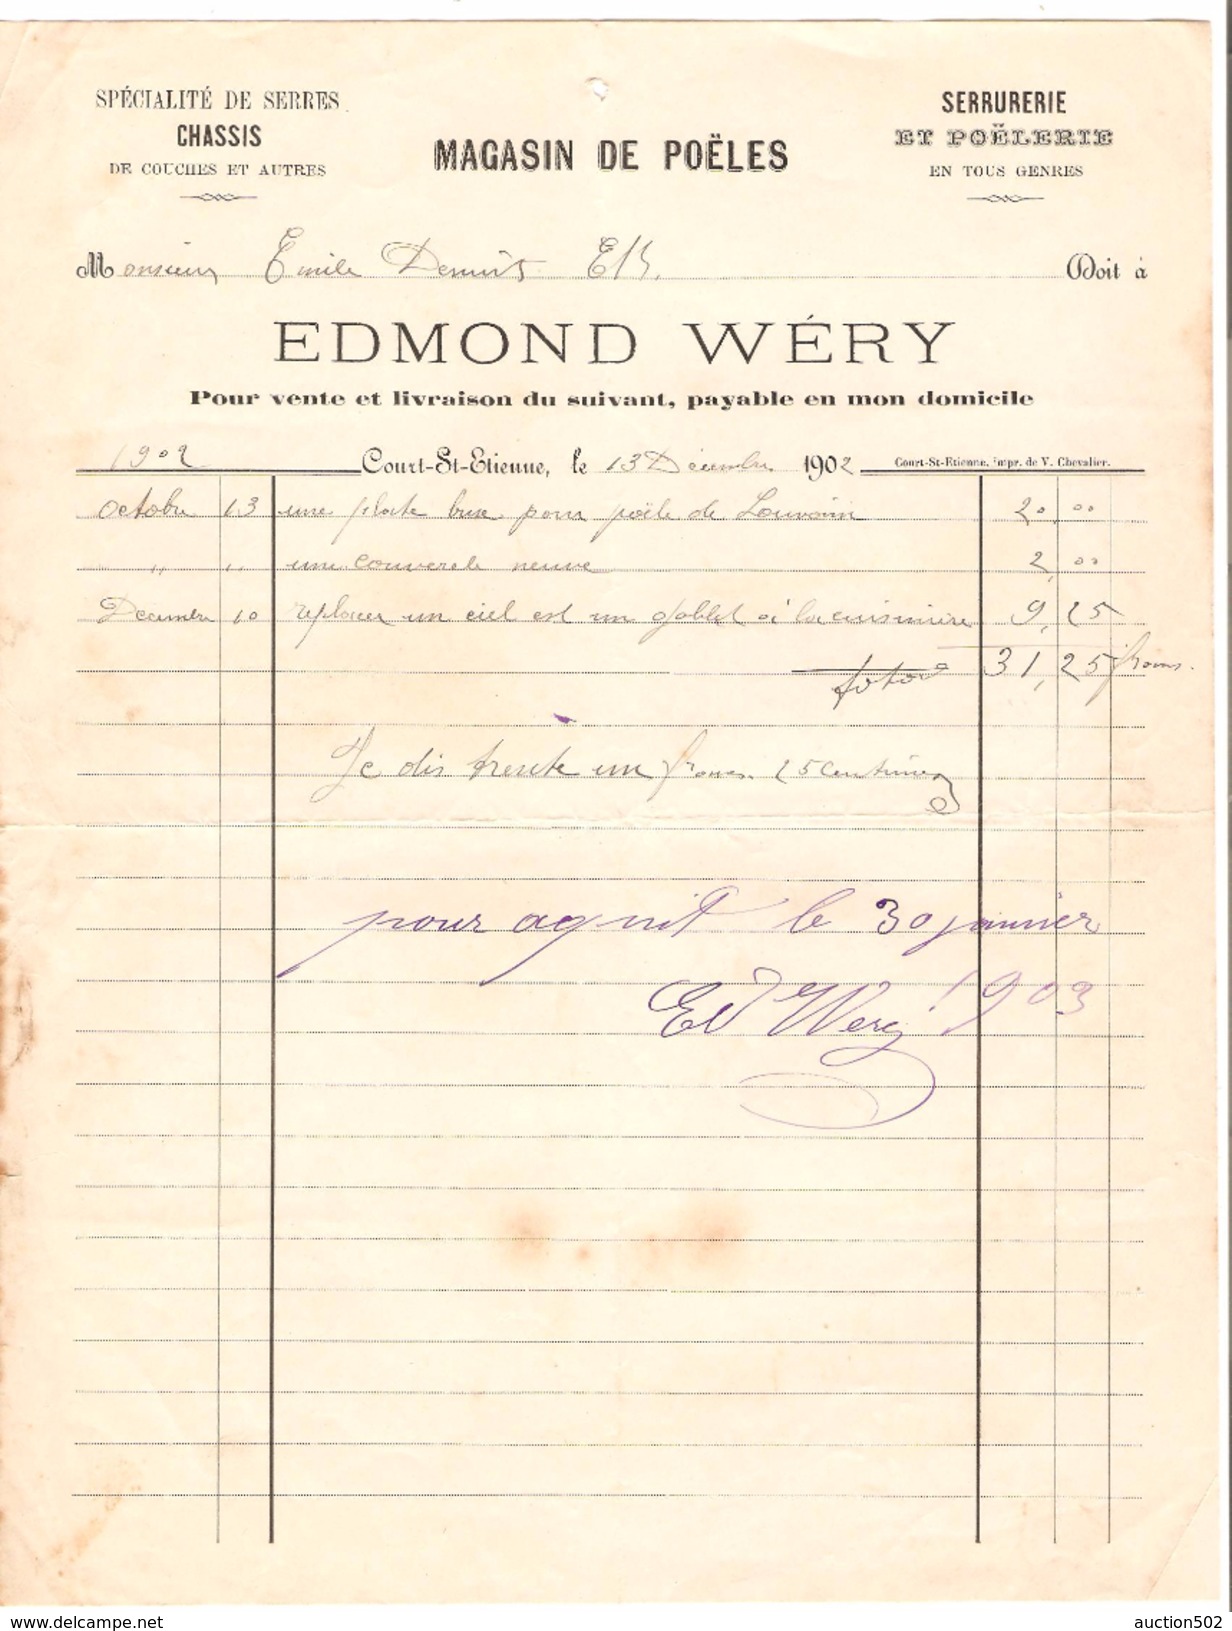 SPÉCIALITÉ DE SERRES
CHASSIS
DE COUCHES ET AUTRES
MAGASIN DE POËLES
SERRURERIE
ET POËLERIE
EN TOUS GENRES
Monsieur Emile Doit à
EDMOND WÉRY
Pour vente et livraison du suivant, payable en mon domicile
1902 Court-St-Etienne, le 13 Décembre 1902 Court-St-Etienne, impr. de V. Chevalier.
octobre 13 une plate buse pour poële de Louvain 20,00
" " une couvercle neuve 2,00
Decembre 10 replacer un ciel est un goblet à la cuisinière 9,25
31,25 francs.
Je dis trente un francs 25 centimes
pour aquit le 30 janvier
Ed Wery 1903
www.delcampe.net
auction502